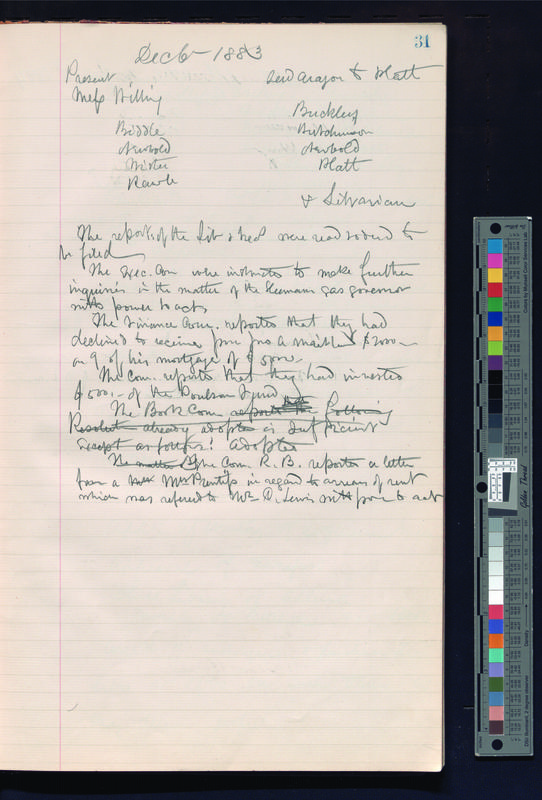 31
Dec 6 1883
Present
Messrs Willing
Biddle
Newbold
Wister
Rawle
Buckley
Hutchinson
Newbold
Platt
& Librarian
The reports of the Lib & Treas were read & ord to
be filed
The Exec. Com were instructed to make further
inquiries in the matter of the gas governor
with power to act,
The Finance Com. reported that they had
declined to receive from Jno A $2000 -
on a/c of his mortgage of $5000 -
The Com. reports that they had invested
$500.- of the Poulson Fund
The Book Com. report the following
Resolut already adopted is sufficient
except as follows: adopted
The matter of The Com. R. B. reported a letter
from a Mrs Prentiss in regard to arrears of rent
which was referred to Mr. D. Lewis with power to act